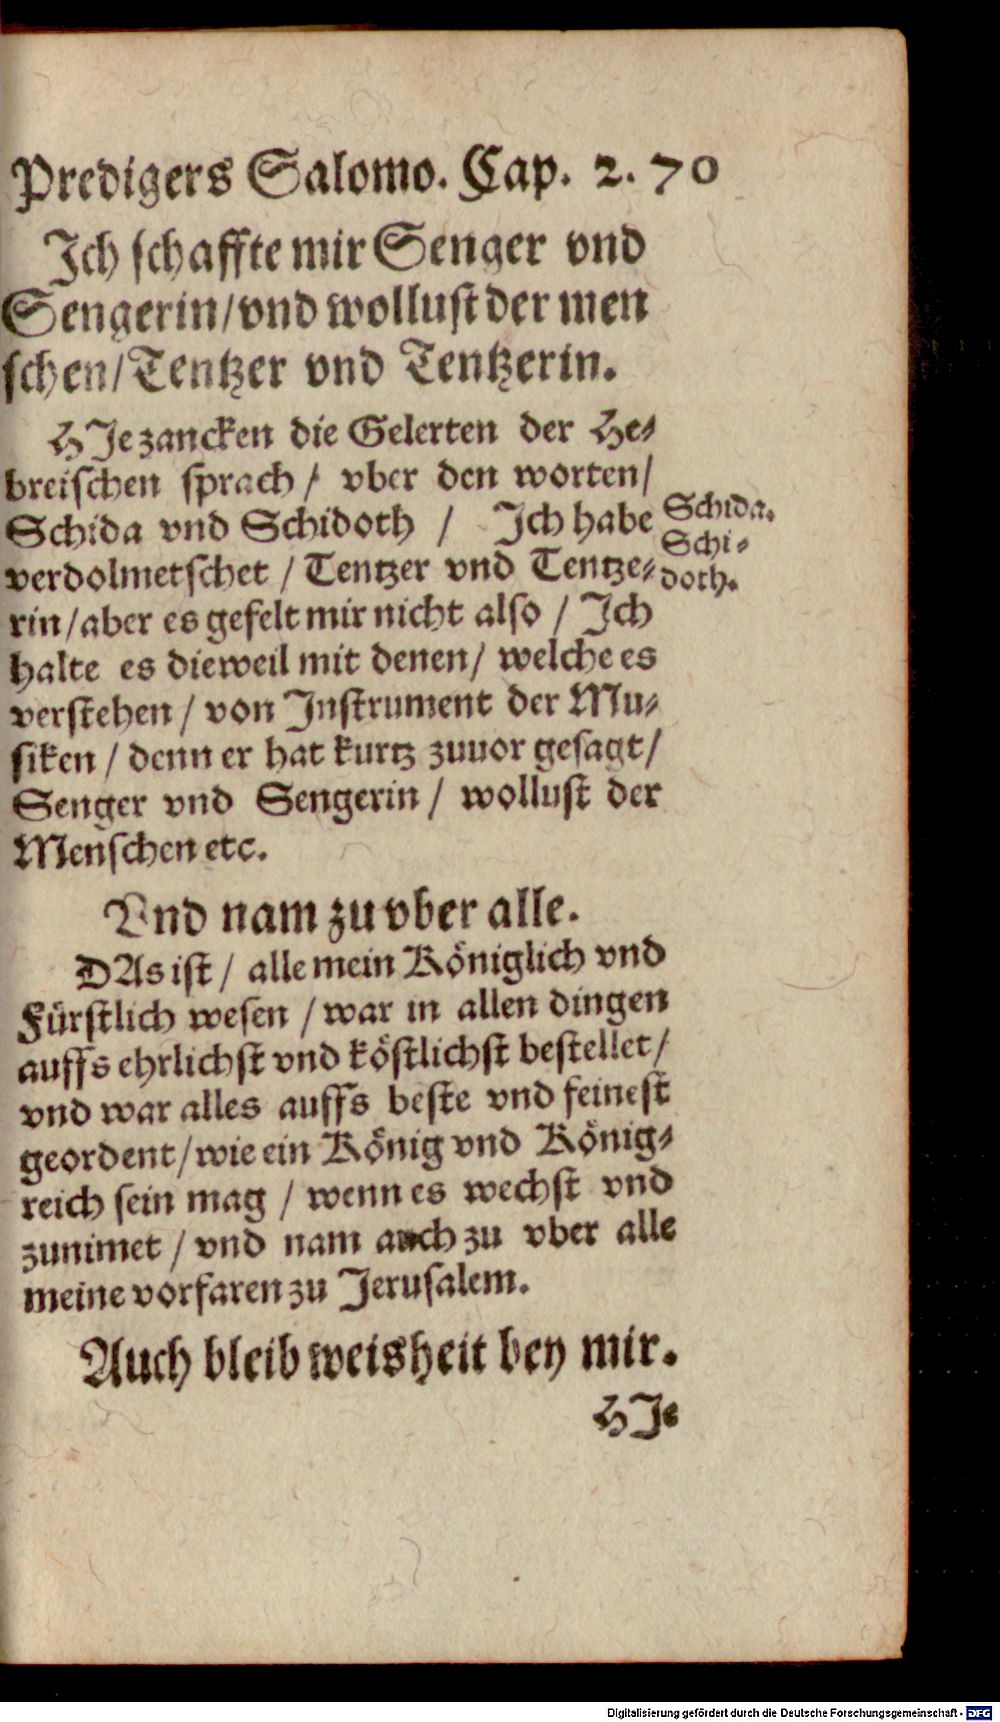 Predigers Salomo. Cap. 2. 70
Ich schaffte mir Senger vnd
Sengerin/vnd wollust der men
schen/Tentzer vnd Tentzerin.
HJe zancken die Gelerten der He-
breischen sprach / vber den worten/
Schida vnd Schidoth / Ich habe
verdolmetschet / Tentzer vnd Tentze-
rin/aber es gefelt mir nicht also / Ich
halte es dieweil mit denen/ welche es
verstehen / von Instrument der Mu-
siken / denn er hat kurtz zuuor gesagt/
Senger vnd Sengerin / wollust der
Menschen etc.
Schida.
Schi-
doth.
Vnd nam zu vber alle.
DAs ist / alle mein Königlich vnd
Fürstlich wesen / war in allen dingen
auffs ehrlichst vnd köstlichst bestellet/
vnd war alles auffs beste vnd feinest
geordent/wie ein König vnd König-
reich sein mag / wenn es wechst vnd
zunimet / vnd nam auch zu vber alle
meine vorfaren zu Jerusalem.
Auch bleib weisheit bey mir.
HJe
Digitalisierung gefördert durch die Deutsche Forschungsgemeinschaft - DFG